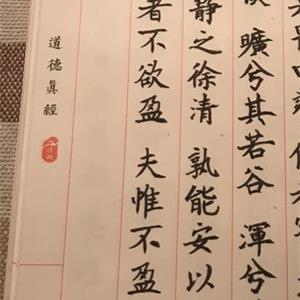 曠兮其若谷 渾兮
靜之徐清 孰能安以
者不欲盈 夫惟不盈
道德眞經